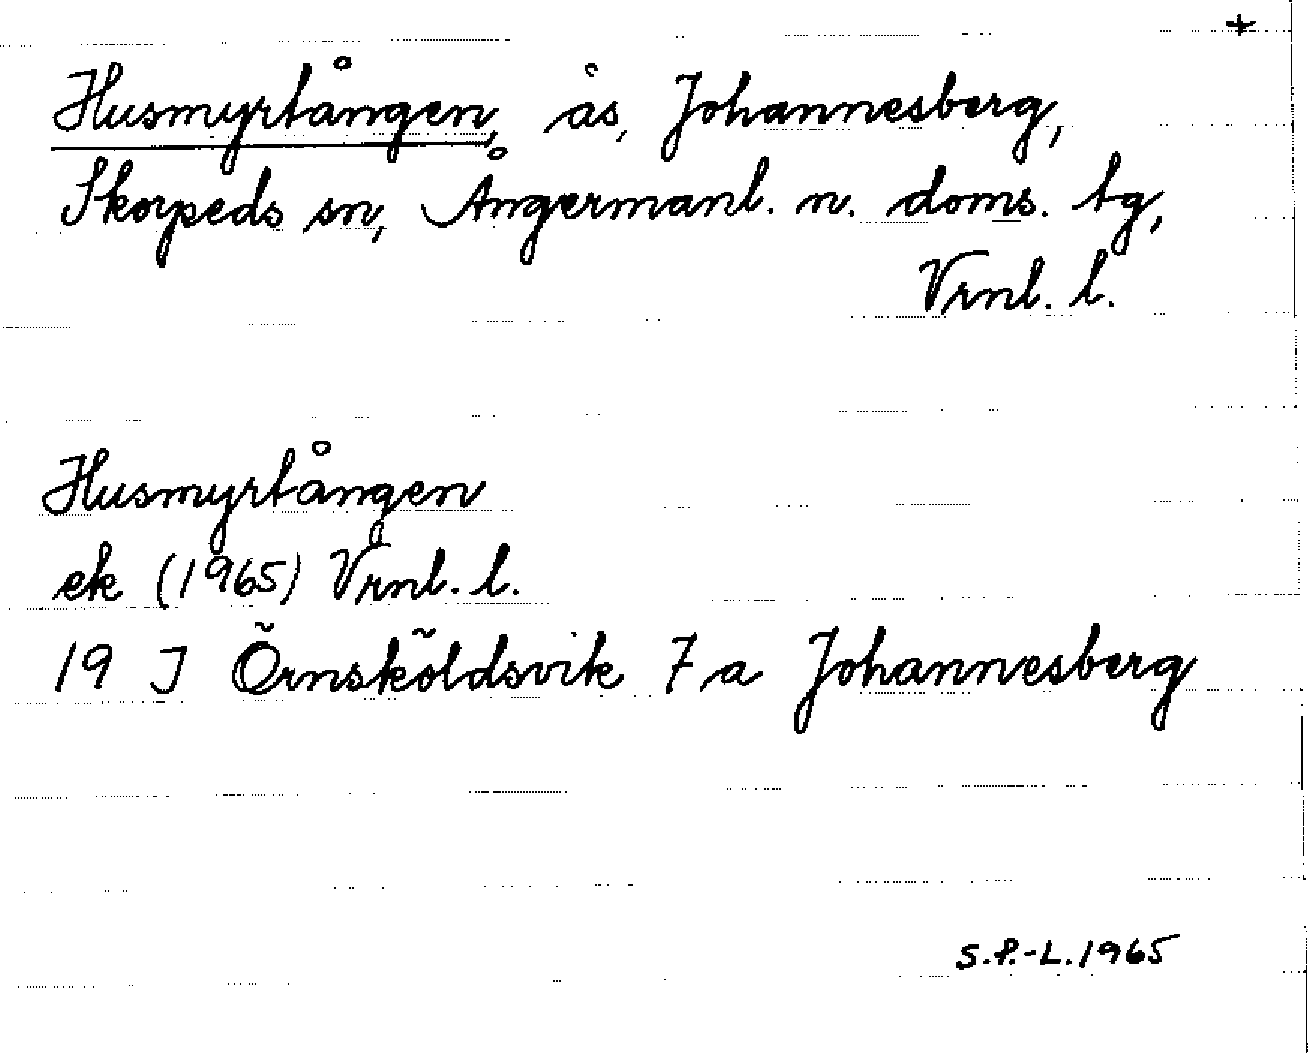 +
Husmyrtången, ås, Johannesberg,
Skorpeds sn, Ångermanl. n. doms. tg,
Vrnl. l.
Husmyrtången
ek (1965) Vrnl. l.
19 J Örnsköldsvik 7 a Johannesberg
S.P.-L. 1965